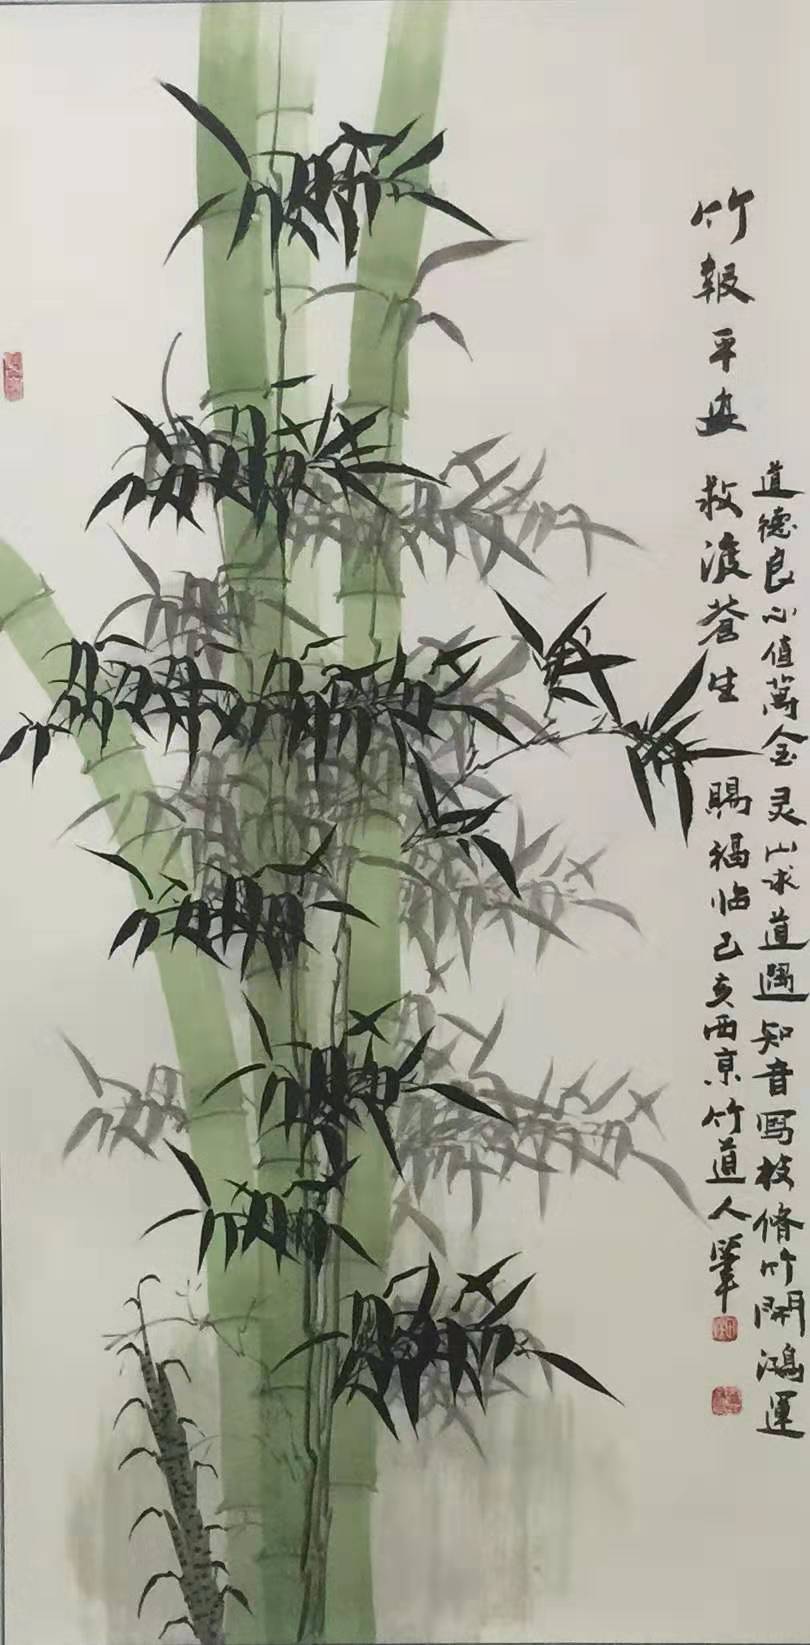 道德良心值萬金灵山求道遇知音写枝脩竹開鴻運
竹報平安救渡蒼生賜福临己亥西京竹道人筆